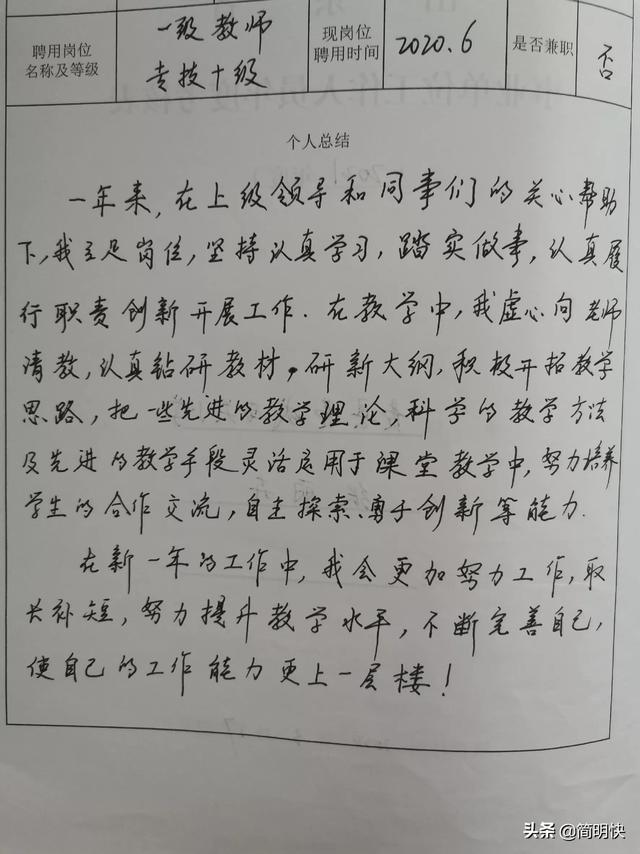 聘用岗位
名称及等级
一级教师
专技十级
现岗位
聘用时间
2020.6
是否兼职
否
个人总结
一年来,在上级领导和同事们的关心帮助
下,我立足岗位,坚持认真学习,踏实做事,认真履
行职责创新开展工作.在教学中,我虚心向老师
请教,认真钻研教材,研新大纲,积极开拓教学
思路,把一些先进的教学理论,科学的教学方法
及先进的教学手段灵活运用于课堂教学中,努力培养
学生的合作交流,自主探索、勇于创新等能力.
在新一年的工作中,我会更加努力工作,取
长补短,努力提升教学水平,不断完善自己,
使自己的工作能力更上一层楼!
头条 @简明快